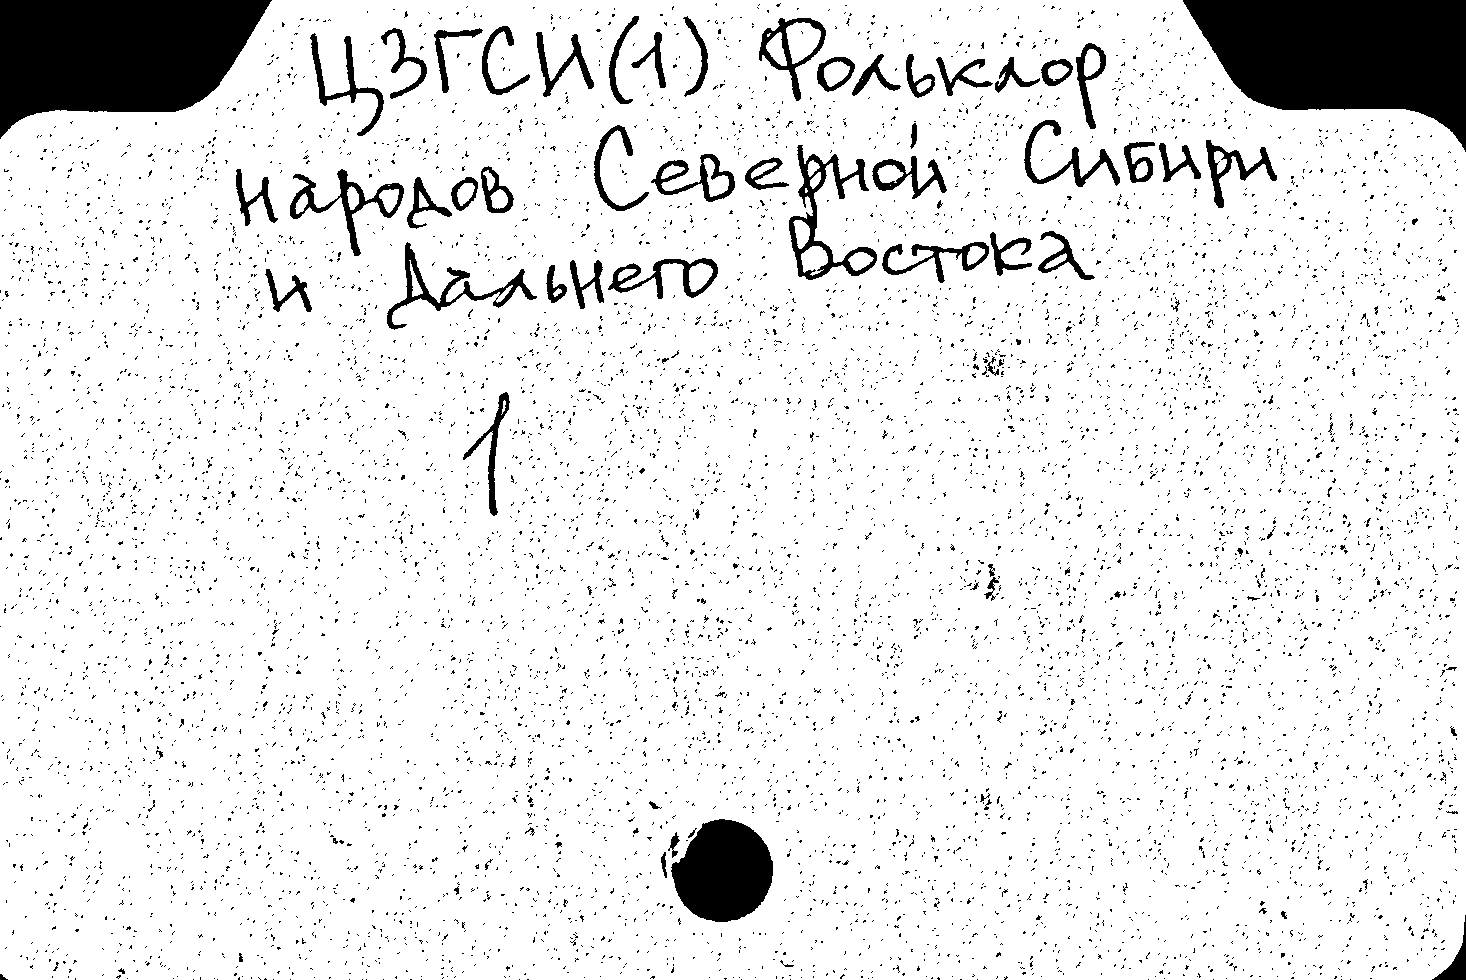 ЦЗГСИ(1) Фольклор
народов Северной Сибири
и Дальнего Востока
1